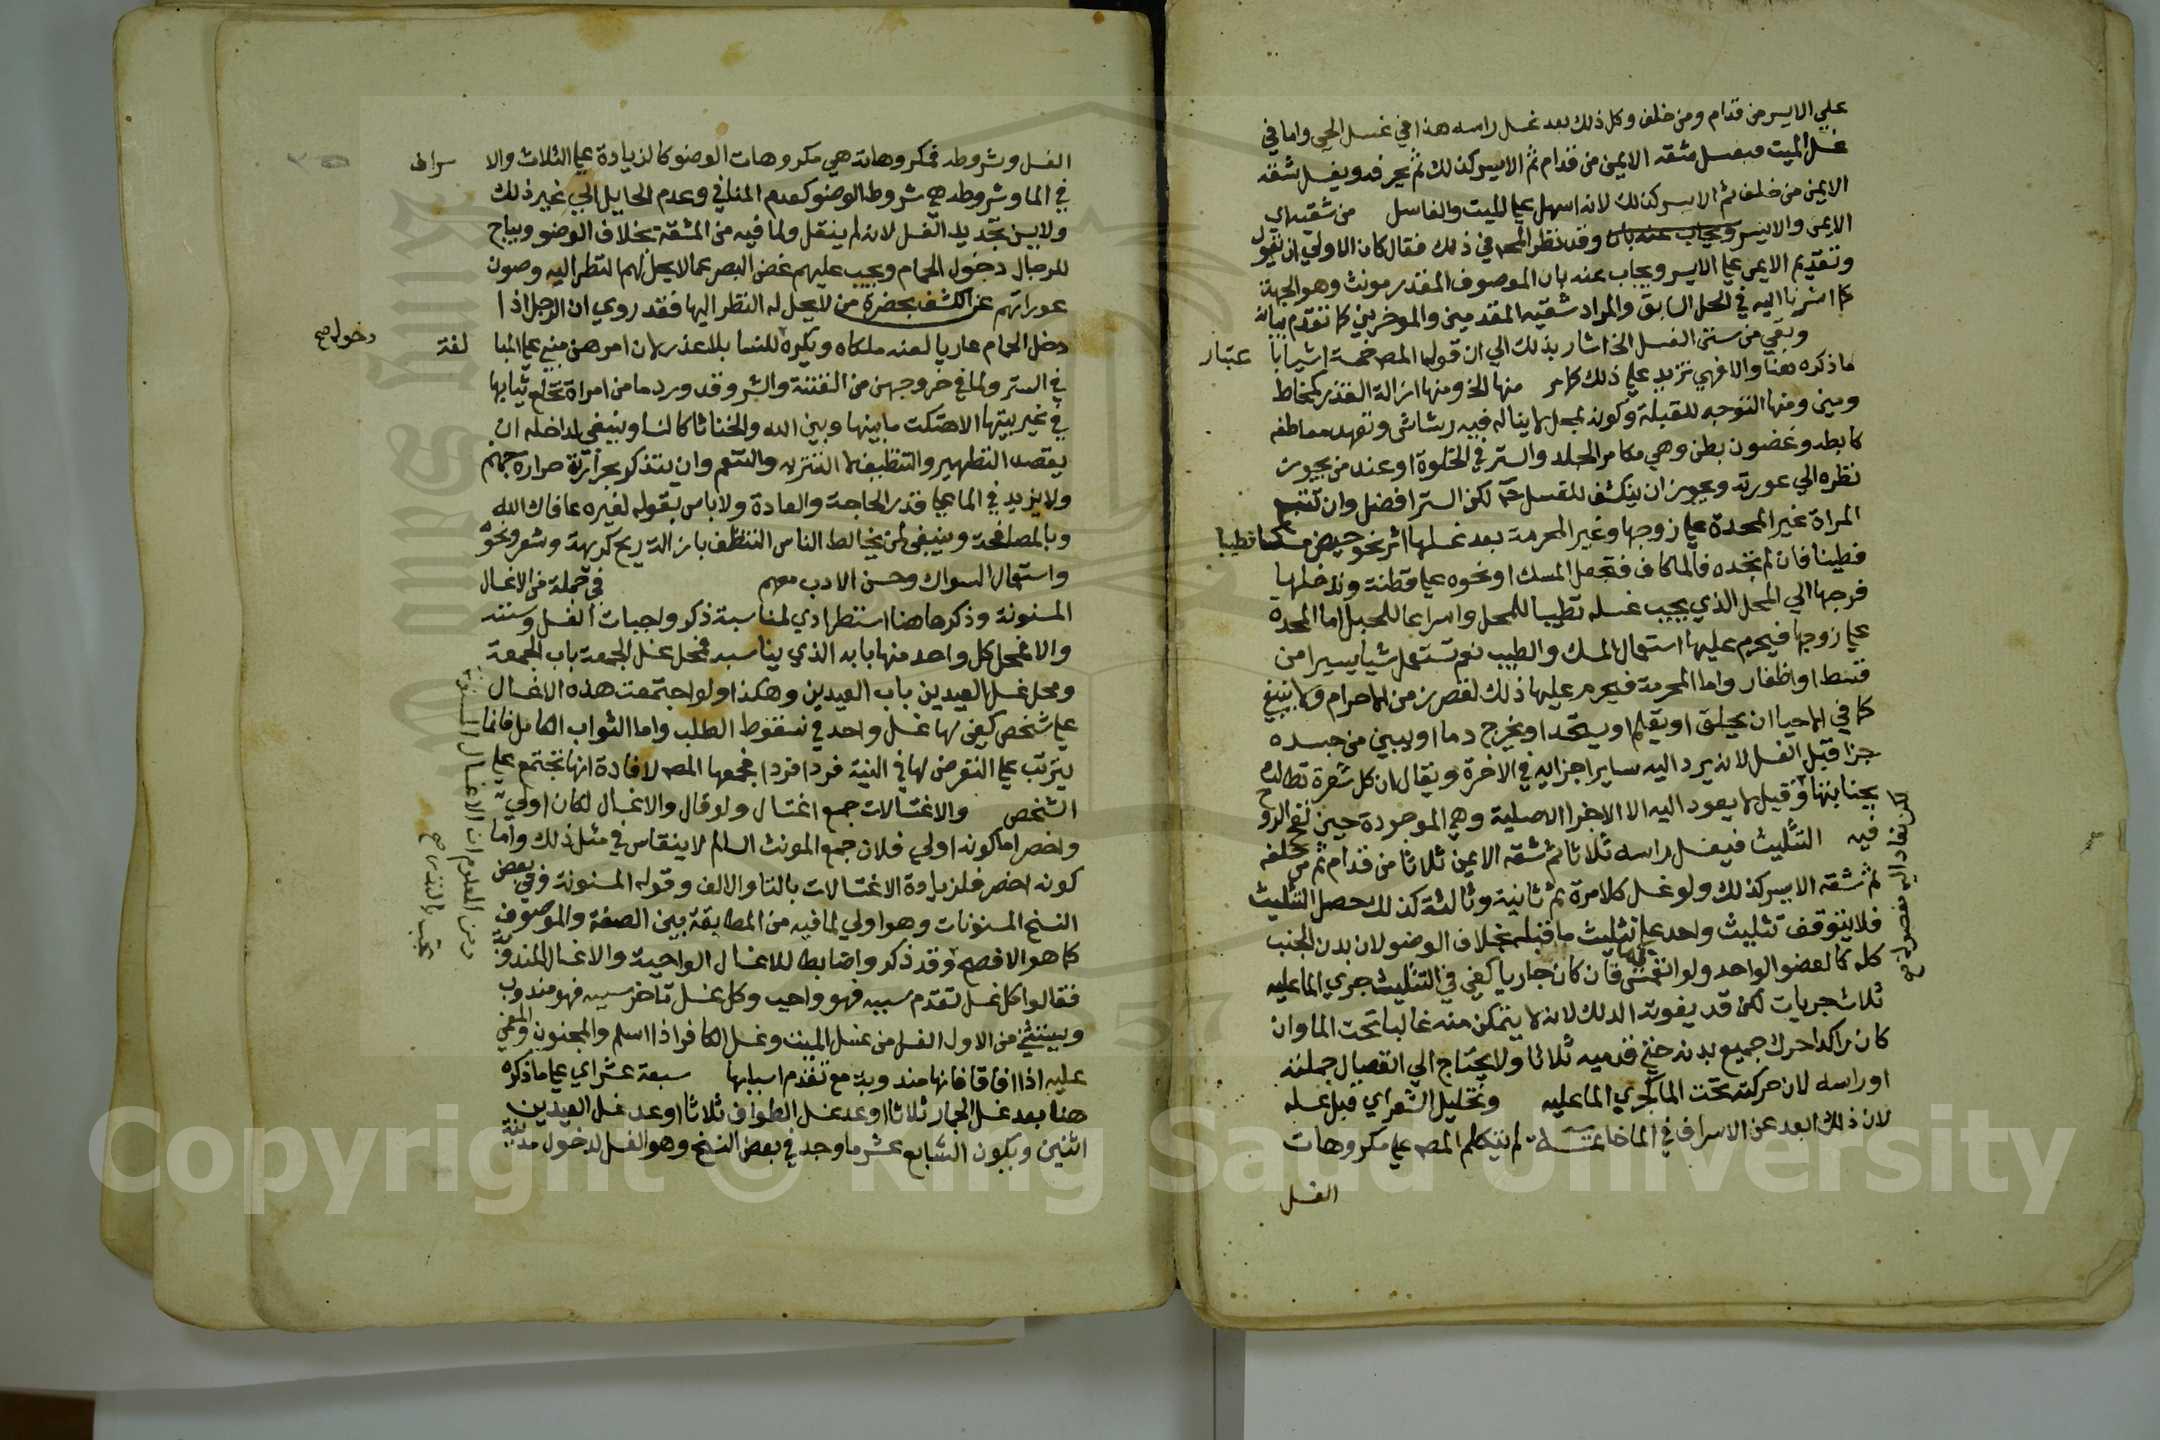 علي الايسر من قدام ومن خلف وكل ذلك بعد غسل راسه هذا في غسل الحي واما في
غسل الميت فيغسل شقه الايمن من قدام ثم الايسر كذلك ثم يحرفه ويغسل شقه
الايمن من خلف ثم الايسر كذلك لانه اسهل علي الميت والغاسل من شقيه اي
الايمن والايسر ويجاب عنه بان وقد نظر المحـ في ذلك فقال كان الاولي ان يقول
وتقديم الايمن علي الايسر ويجاب عنه بان الموصوف المقدر مونث وهو الجهة
كما اشرنا اليه في الحل السابق والمراد شقيه المقدمين والموخرين كما تقدم بيانه
وبقي من سنن الغسل الخ اشار بذلك الي ان قوله المصـ خمسة اشيا با عتبار
ما ذكره هنا والا فهي تزيد علي ذلك كما مر منها الخ ومنها ازالة القذر كمخاط
ومني ومنها التوجه للقبلة وكونه بمحل لا يناله فيه رشاش وتعهد معاطفه
كابطه وغضون بطن وهي مكاسر الجلد والستر في الخلوة او عند من يجوز
نظره الي عورته ويجوز ان ينكشف للغسل ح لكن الستر افضل وان تتبع
المراة غير المحدة علي زوجها وغير المحرمة بعد غسلها اثر نحو حيض مسكا
فطينا فان لم تجده فالما كاف فتجعل المسك او نحوه علي قطنة وتدخلها
فرجها الي المحل الذي يجب غسله تطييبا للمحل واسراعا للحبل اما المحدة
علي زوجها فيحرم عليها استعمال المسك والطيب نعم تستعمل شيا يسيرا من
قسط او اظفار واما المحرمة فيحرم عليها ذلك لقصر زمن الاحرام ولا ينبغي
كما في الاحيا ان يحلق او يقلم او يستحد او يخرج دما او يبين من جسده
جزا قبل الغسل لانه يرد اليه ساير اجزايه في الاخرة ويقال ان كل شعرة تطالبه
بجنابتها وقيل لا يعود اليه الا الاجزا الاصلية وهي الموجودة حين نفخ الروح
فيه التثليث فيغسل راسه ثلاثا ثم شقه الايمن ثلاثا من قدام ثم من خلفه
ثم شقه الايسر كذلك ولو غسل كلا مرة ثم ثانية وثالثة كذلك حصل التثليث
فلا يتوقف تثليث واحد علي تثليث ما قبله بخلاف الوضو لان بدن الجنب
كله كالعضو الواحد ولو انغمس فان كان جاريا كفي في التثليث جري الما عليه
ثلاث جريات لكن قد يفوته الدلك لانه لا يتمكن منه غالبا تحت الما وان
كان راكدا حرك جميع بدنه حتي قدميه ثلاثا ولا يحتاج الي انفصال جملته
او راسه لان حركته تحت الما كجري الما عليه وتخليل الشعر اي قبل غسله
لان ذلك ابعد عن الاسراف في الما خاتمـة لم يتكلم المصـ علي مكروهات
الغسل
الغسل وشروطه فمكروهاته هي مكروهات الوضو كالزيادة علي الثلاث والا سراف
في الما وشروطه هي شروط الوضو كعدم المنافي وعدم الحايل الي غير ذلك
ولا يسن تجديد الغسل لانه لم ينقل ولما فيه من المشقة بخلاف الوضو ويباح
للرجال دخول الحمام ويجب عليهم غض البصر عما لا يحل لهم النظر اليه وصون
عوراتهم عن الكشف بحضرة من لا يحل له النظر اليها فقد روي ان الرجل اذا
دخل الحمام عاريا لعنه ملكاه ويكره للنسا بلا عذر لان امرهن مبني علي المبا لغة
دخوله صح
في الستر ولما في خروجهن من الفتنة والشر وقد ورد ما من امراة تخلع ثيابها
في غير بيتها الا هتكت ما بينها وبين الله والخناثا كالنسا وينبغي لداخله ان
يقصد التطهير والتنظيف لا التنزه والتنعم وان يتذكر بحرارته حرارة جهنم
ولا يزيد في الما علي قدر الحاجة والعادة ولا باس بقوله لغيره عافاك الله
وبالمصافحة وينبغي لمن يخالط الناس التنظف بازالة ريح كريهة وشعر ونحوه
واستعمال السواك وحسن الادب معهم في جملة من الاغسال
المسنونة وذكرها هنا استطرادي لمناسبة ذكر واجبات الغسل وسننه
والا فمحل كل واحد منها بابه الذي يناسبه فمحل غسل الجمعة باب الجمعة
ومحل غسل العيدين باب العيدين وهكذا ولو اجتمعت هذه الاغسال
علي شخص كفي لها غسل واحد في سقوط الطلب واما الثواب الكامل فانما
يترتب علي التعرض لها في النية فردا فردا فجمعها المصـ لافادة انها تجتمع علي
الشخص والاغتسالات جمع اغتسال ولو قال والاغسال لكان اولي
واخصر اما كونه اولي فلان جمع المونث السالم لا ينقاس في مثل ذلك واما
كونه اخصر فلزيادة الاغتسالات بالتا والالف وقوله المسنونة وفي بعض
النسخ المسنونات وهو اولي لما فيه من المطابقة بين الصفة والموصوف
كما هو الافصح وقد ذكروا ضابطا للاغسال الواجبة والاغسال المندوبة
فقالوا كل غسل تقدم سببه فهو واجب وكل غسل تاخر سببه فهو مندوب
ويستثني من الاول الغسل من غسل الميت وغسل الكافر اذا اسلم والمجنون والمغمي
عليه اذا افاقا فانها مندوبة مع تقدم اسبابها سبعة عشر اي علي ما ذكره
هنا بعد غسل الجمار ثلاثا وعد غسل الطواف ثلاثا وعد غسل العيدين
اثنين ويكون السابع عشر ما وجد في بعض النسخ وهو الغسل لدخول مدينة
Copyright © King Saud University